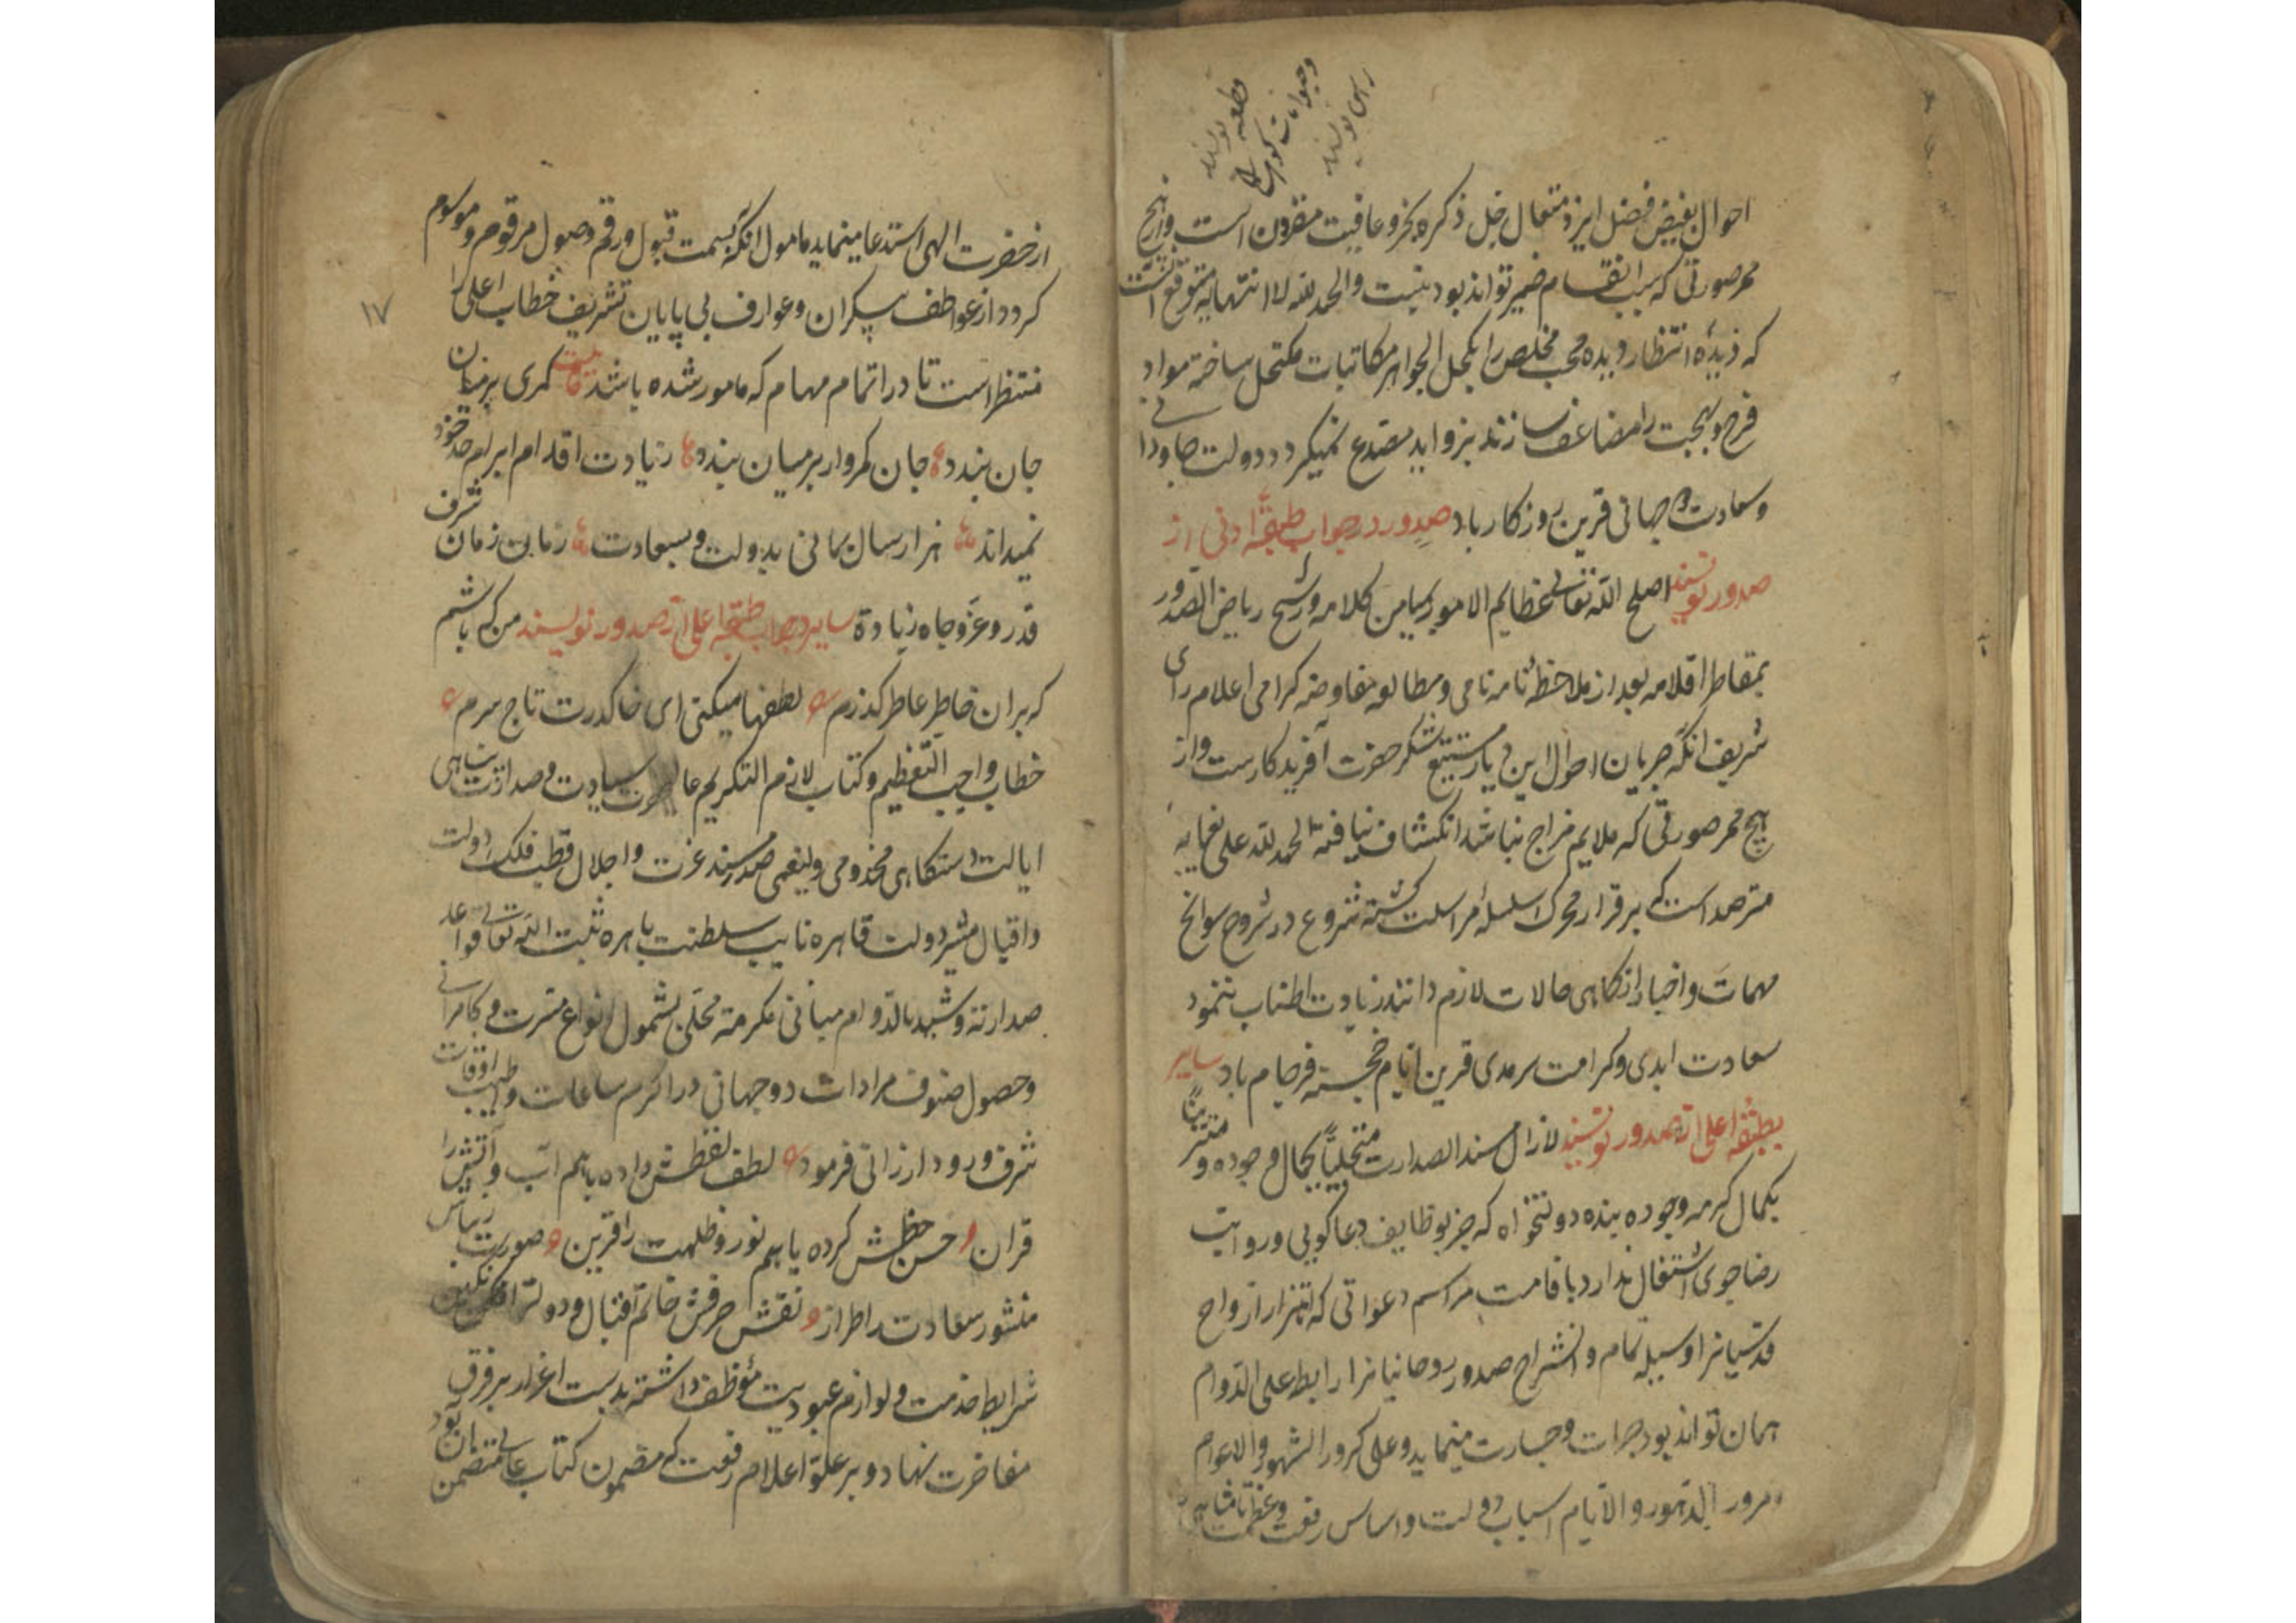 احوال بفیض فضل ایزد متعال جل ذکره بخیر و عافیت مقرون است و از هیچ
ممر صورتی که سبب انقسام ضمیر تواند بود نیست والحمد لله لا انتهایه متوقع آنست
که دیده انتظار دیده محب مخلص را بکحل الجواهر مکاتبات مکتحل ساخته مواد
فرح و بهجت را مضاعف سازند بزواید مصدع نمیگردد دولت جاودانی
و سعادت دو جهانی قرین روزگار باد صدور در جواب طبقهٔ ادنی از
صدور نویسند اصلح الله تعالی عظایم الامور بمیامن کلامه و رشح ریاض الصدور
بمقاطر اقلامه بعد از ملاحظهٔ نامه نامی و مطالعه مفاوضه گرامی اعلام رای
شریف آنکه جریان احوال این دیار مستتبع شکر حضرت آفریدگارست و از
هیچ ممر صورتی که ملایم مزاج نباشد انکشاف نیافته الحمد لله علی نعمایه
مترصد است که برقرار محرک سلسلهٔ مراسلت گشته شروع در شروح سوانح
مهمات و اخبار از کماهی حالات لازم دانند زیادت اطناب ننمود
سعادت ابدی و کرامت سرمدی قرین ایام خجسته فرجام باد سایر
بطبقهٔ اعلی از صدور نویسند لازال مسند الصدارت متحلیاً بجمال وجوده و متزیناً
بکمال کرمه وجوده بنده دولتخواه که جز بوظایف دعاگویی و روایت
رضاجوی اشتغال ندارد باقامت مراسم دعواتی که اهتزاز ارواح
قدسیانرا وسیله تمام و انشراح صدور روحانیانرا رابط علی الدوام
همان تواند بود جرات و جسارت مینماید و علی کرور الشهور والاعوام
و مرور الدهور والایام اسباب دولت و اساس رفعت و عظمت
از حضرت الهی استدعا مینماید مامول آنکه بسمت قبول و رقم وصول مرقوم و موسوم
گردد از عواطف بیکران و عوارف بی پایان تشریف خطاب اعلی را
منتظر است تا در اتمام مهام که مامور شده باشد کمری بر میان
جان بندد جان کمروار بر میان بندد زیادت اقدام ابرام حد خود
نمیداند هزار سال بمانی بدولت و بسعادت زمان زمان شرف
قدر و عز و جاه زیادة سایر در جواب طبقهٔ اعلی از صدور نویسند من که باشم
که بران خاطر عاطر گذرم لطفها میکنی ای خاک درت تاج سرم
خطاب واجب التعظیم و کتاب لازم التکریم سیادت و صدارت پناهی
ایالت دستگاهی مخدومی ولینعمی صدر مسند عزت و اجلال قطب فلک دولت
و اقبال مشیر دولت قاهره نایب سلطنت باهره ثبت الله تعالی قواعد
صدارته و شید بالدوام مبانی مکرمته محلی بشمول انواع مسرت و کامرانی
و حصول صنوف مرادات دو جهانی در اکرم ساعات و اطیب اوقات
شرف ورود ارزانی فرمود لطف لفظش داده باهم آب و آتش را
قران حسن خطش کرده باهم نور و ظلمت را قرین صورت زیباش
منشور سعادت را طراز نقش حرفش خاتم اقبال و دولت را نگین
شرایط خدمت و لوازم عبودیت موظف داشته بدست اعزاز بر فرق
مفاخرت نهاد و بر علو اعلام رفعت که مضمون کتاب عالی متضمن آن بود
۱۷